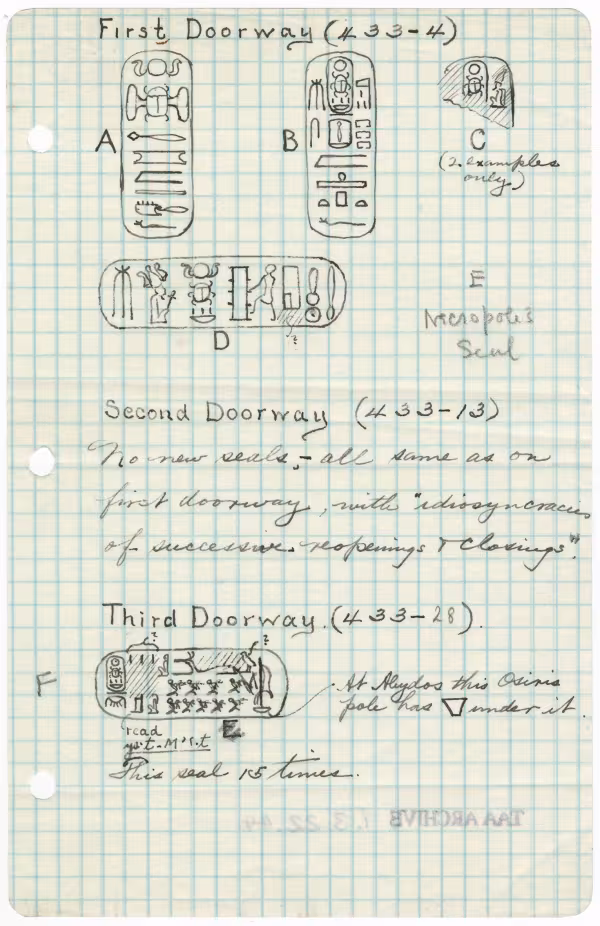 First Doorway (433-4)
A
B
C
(2 examples
only.)
D
E
Necropolis
Seal
Second Doorway (433-13)
No new seals, - all same as on
first doorway, with "idiosyncracies
of successive reopenings & closings".
Third Doorway. (433-28).
?
?
F
At Abydos this Osiris
pole has under it.
read
E
This seal 15 times.
TAA ARCHIVE 1.3.22.44